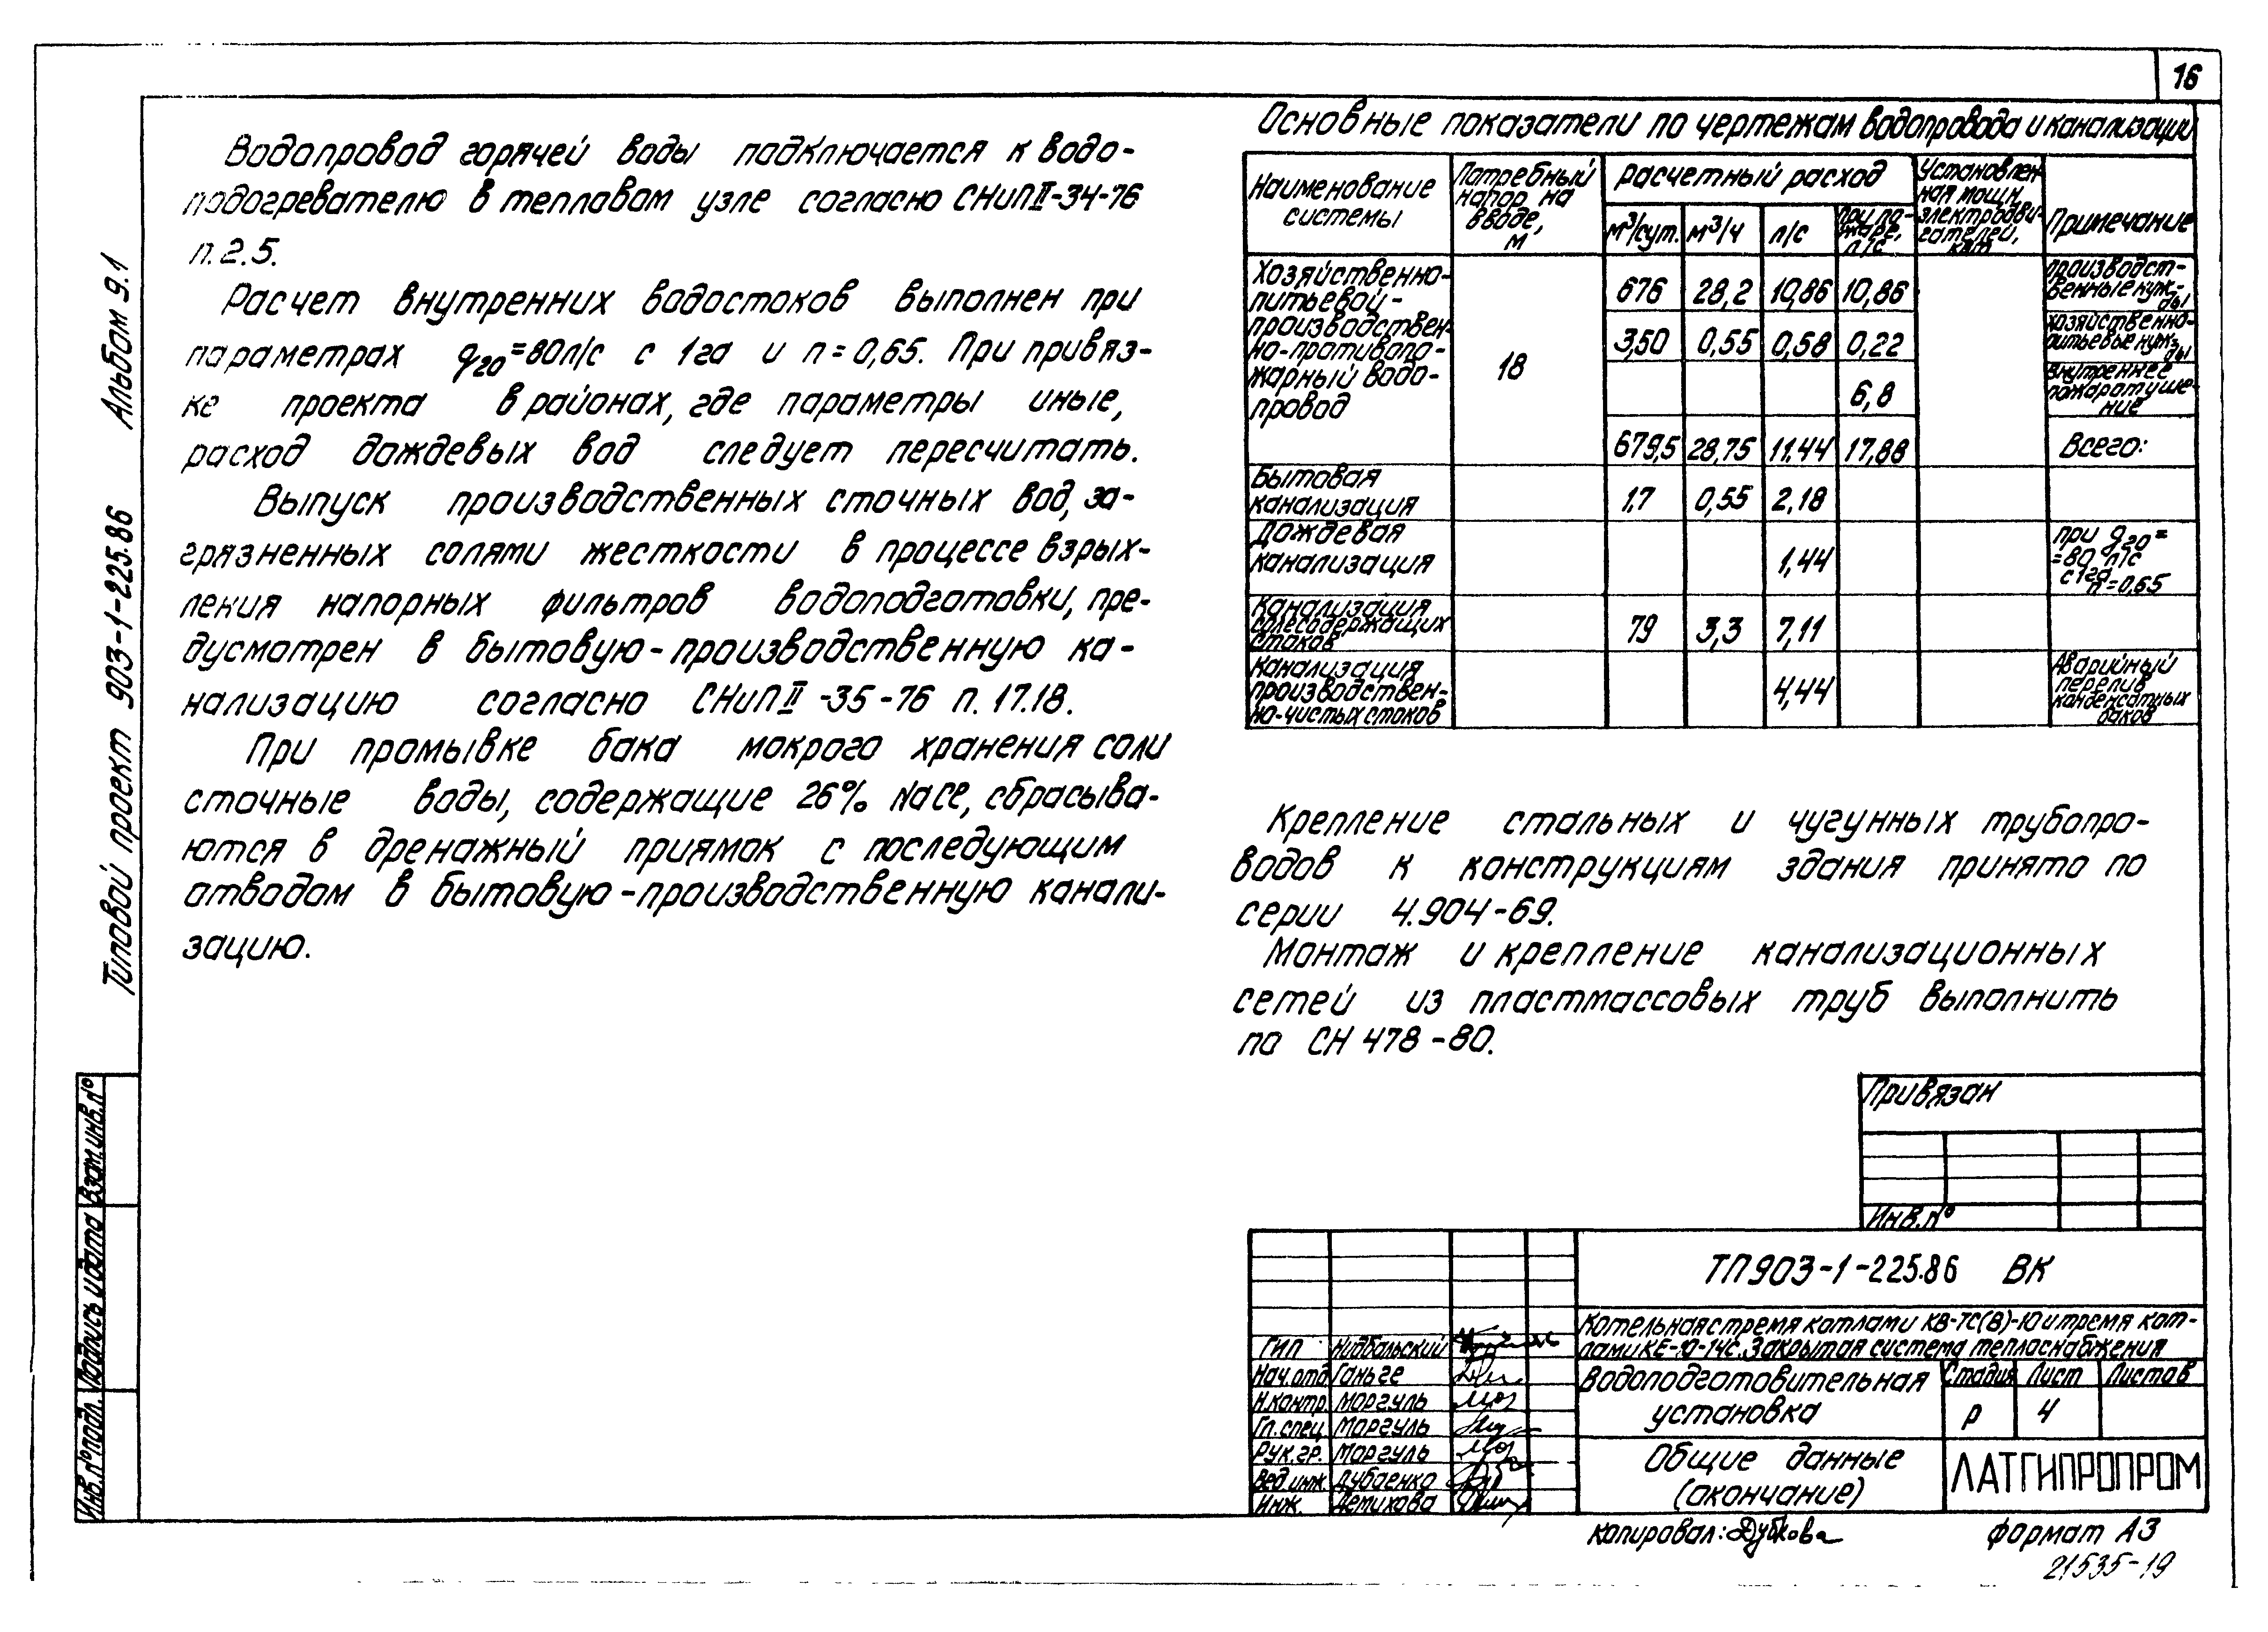 16
Водопровод горячей воды подключается к водо-
подогревателю в тепловом узле согласно СНиП II-34-76
п.2.5.
Расчет внутренних водостоков выполнен при
параметрах q20=80л/с с 1га и n=0,65. При привяз-
ке проекта в районах, где параметры иные,
расход дождевых вод следует пересчитать.
Выпуск производственных сточных вод, за-
грязненных солями жесткости в процессе взрых-
ления напорных фильтров водоподготовки, пре-
дусмотрен в бытовую-производственную ка-
нализацию согласно СНиП II-35-76 п. 17.18.
При промывке бака мокрого хранения соли
сточные воды, содержащие 26% NaCe, сбрасыва-
ются в дренажный приямок с последующим
отводом в бытовую-производственную канали-
зацию.
Основные показатели по чертежам водопровода и канализации
Наименование системы
Потребный напор на вводе, м
Расчетный расход
м³/сут. м³/ч л/с При по-жаре, л/с
Установлен-ная мощн. электродви-гателей, квт
Примечание
Хозяйственно-
питьевой-
производствен-
но-противопо-
жарный водо-
провод
18
676 28,2 10,86 10,86 производст-венные нуж-ды
3,50 0,55 0,58 0,22 хозяйственно-питьевые нужды
6,8 внутреннее пожаротуше-ние
679,5 28,75 11.44 17,88 Всего:
Бытовая канализация 1,7 0,55 2,18
Дождевая канализация 1,44 при q20= =80 л/с с 1га n=0,65
Канализация солесодержащих стоков 79 3,3 7,11
Канализация производствен-но-чистых стоков 4,44 Аварийный перелив конденсатных баков
Крепление стальных и чугунных трубопро-
водов к конструкциям здания принято по
серии 4.904-69.
Монтаж и крепление канализационных
сетей из пластмассовых труб выполнить
по СН 478-80.
Привязан
Инв.№
ТП 903-1-225.86 ВК
Котельная с тремя котлами КВ-ТС(В)-10 и тремя кот-
лами КЕ-10-14с. Закрытая система теплоснабжения
Водоподготовительная
установка
Стадия Лист Листов
Р 4
Общие данные
(окончание)
ЛАТГИПРОПРОМ
ГИП Нидбальский
Нач.отд. Ганьге
Н.контр. Моргуль
Гл.спец. Моргуль
Рук.гр. Моргуль
Вед.инж. Дубаенко
Инж. Демихова
Копировал: Дубкова
Формат А3
21535-19
Типовой проект 903-1-225.86 Альбом 9.1
Инв.№подл. Подпись и дата Взам.инв.№